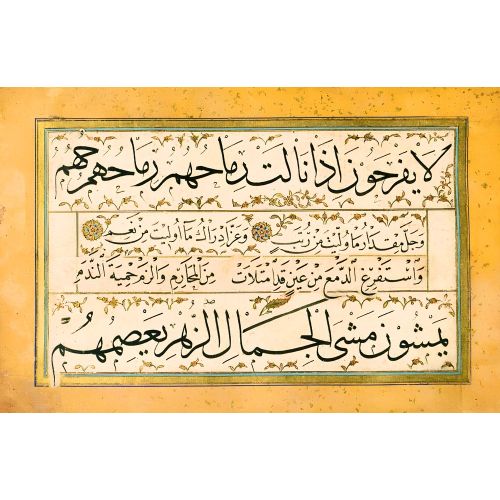 لا يفرحون اذا نالت رماحهم رماحهم حهم
وجل مقدار ما وليت من رتب وعز ادراك ما اوليت من نعم
واستفرغ الدمع من عين قد امتلات من المحارم والزم حمية الندم
يمشون مشى الجمال الزهر يعصمهم